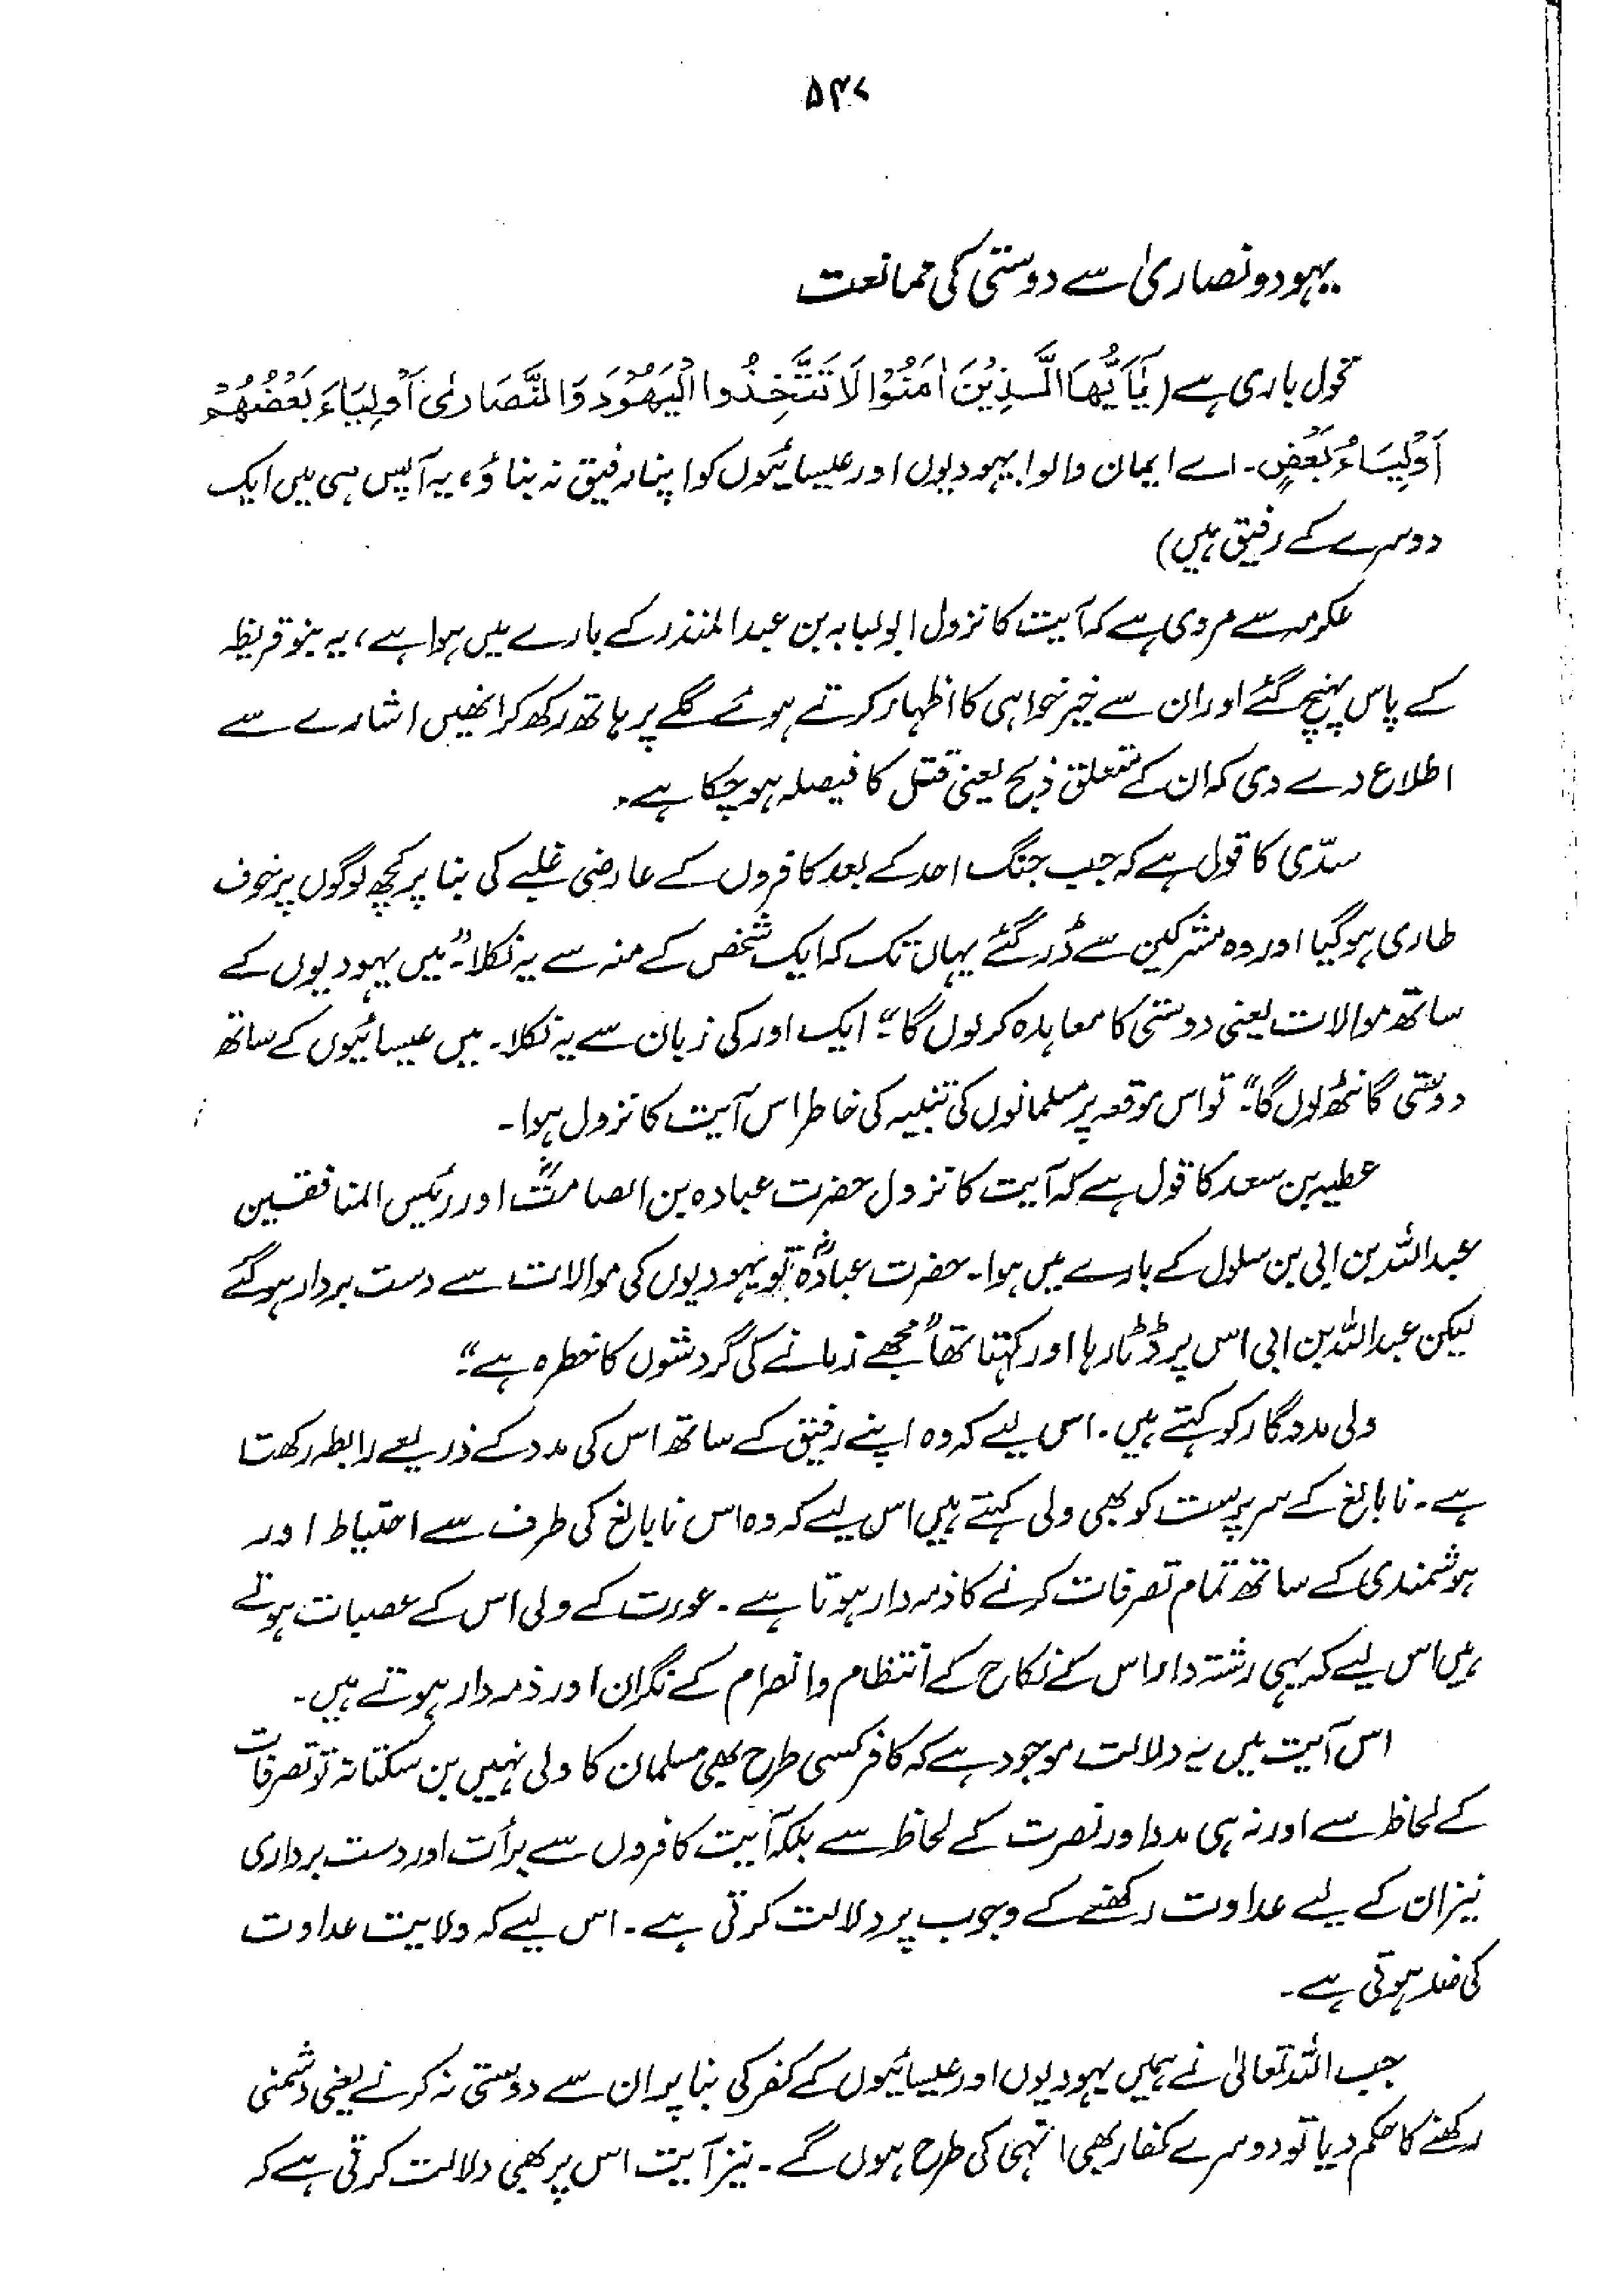 ۵۴۷
یہود و نصاریٰ سے دوستی کی ممانعت
قول باری ہے (یٰۤاَیُّهَا الَّذِیْنَ اٰمَنُوْا لَا تَتَّخِذُوا الْیَهُوْدَ وَالنَّصَارٰی اَوْلِیَآءَ بَعْضُهُمْ
اَوْلِیَآءُ بَعْضٍ۔ اے ایمان والو! یہودیوں اور عیسائیوں کو اپنا رفیق نہ بناؤ، یہ آپس ہی میں ایک
دوسرے کے رفیق ہیں)
عکرمہ سے مروی ہے کہ آیت کا نزول ابولبابہ بن عبدالمنذر کے بارے میں ہوا ہے، یہ بنو قریظہ
کے پاس پہنچ گئے اور ان سے خیر خواہی کا اظہار کرتے ہوئے گلے پر ہاتھ رکھ کر انھیں اشارے سے
اطلاع دے دی کہ ان کے متعلق ذبح یعنی قتل کا فیصلہ ہو چکا ہے۔
سدّی کا قول ہے کہ جب جنگ احد کے بعد کافروں کے عارضی غلبے کی بنا پر کچھ لوگوں پر خوف
طاری ہوگیا اور وہ مشرکین سے ڈر گئے یہاں تک کہ ایک شخص کے منہ سے یہ نکلا۔ "میں یہودیوں کے
ساتھ موالات یعنی دوستی کا معاہدہ کر لوں گا"۔ ایک اور کی زبان سے یہ نکلا۔ میں عیسائیوں کے ساتھ
دوستی گانٹھ لوں گا"۔ تو اس موقعہ پر مسلمانوں کی تنبیہ کی خاطر اس آیت کا نزول ہوا۔
عطیہ بن سعد کا قول ہے کہ آیت کا نزول حضرت عبادہ بن الصامتؓ اور رئیس المنافقین
عبداللہ بن ابی بن سلول کے بارے میں ہوا۔ حضرت عبادہؓ تو یہودیوں کی موالات سے دست بردار ہو گئے
لیکن عبداللہ بن ابی اس پر ڈٹا رہا اور کہتا تھا "مجھے زمانے کی گردشوں کا خطرہ ہے"۔
ولی مددگار کو کہتے ہیں۔ اس لیے کہ وہ اپنے رفیق کے ساتھ اس کی مدد کے ذریعے رابطہ رکھتا
ہے۔ نابالغ کے سرپرست کو بھی ولی کہتے ہیں اس لیے کہ وہ اس نابالغ کی طرف سے احتیاط اور
ہوشمندی کے ساتھ تمام تصرفات کرنے کا ذمہ دار ہوتا ہے۔ عورت کے ولی اس کے عصبات ہوتے
ہیں اس لیے کہ یہی رشتہ دار اس کے نکاح کے انتظام وانصرام کے نگران اور ذمہ دار ہوتے ہیں۔
اس آیت میں یہ دلالت موجود ہے کہ کافر کسی طرح بھی مسلمان کا ولی نہیں بن سکتا نہ تو تصرفات
کے لحاظ سے اور نہ ہی مدد اور نصرت کے لحاظ سے بلکہ آیت کافروں سے برأت اور دست برداری
نیز ان کے لیے عداوت رکھنے کے وجوب پر دلالت کرتی ہے۔ اس لیے کہ ولایت عداوت
کی ضد ہوتی ہے۔
جب اللہ تعالیٰ نے ہمیں یہودیوں اور عیسائیوں کے کفر کی بنا پر ان سے دوستی نہ کرنے یعنی دشمنی
رکھنے کا حکم دیا تو دوسرے کفار بھی انہی کی طرح ہوں گے۔ نیز آیت اس پر بھی دلالت کرتی ہے کہ